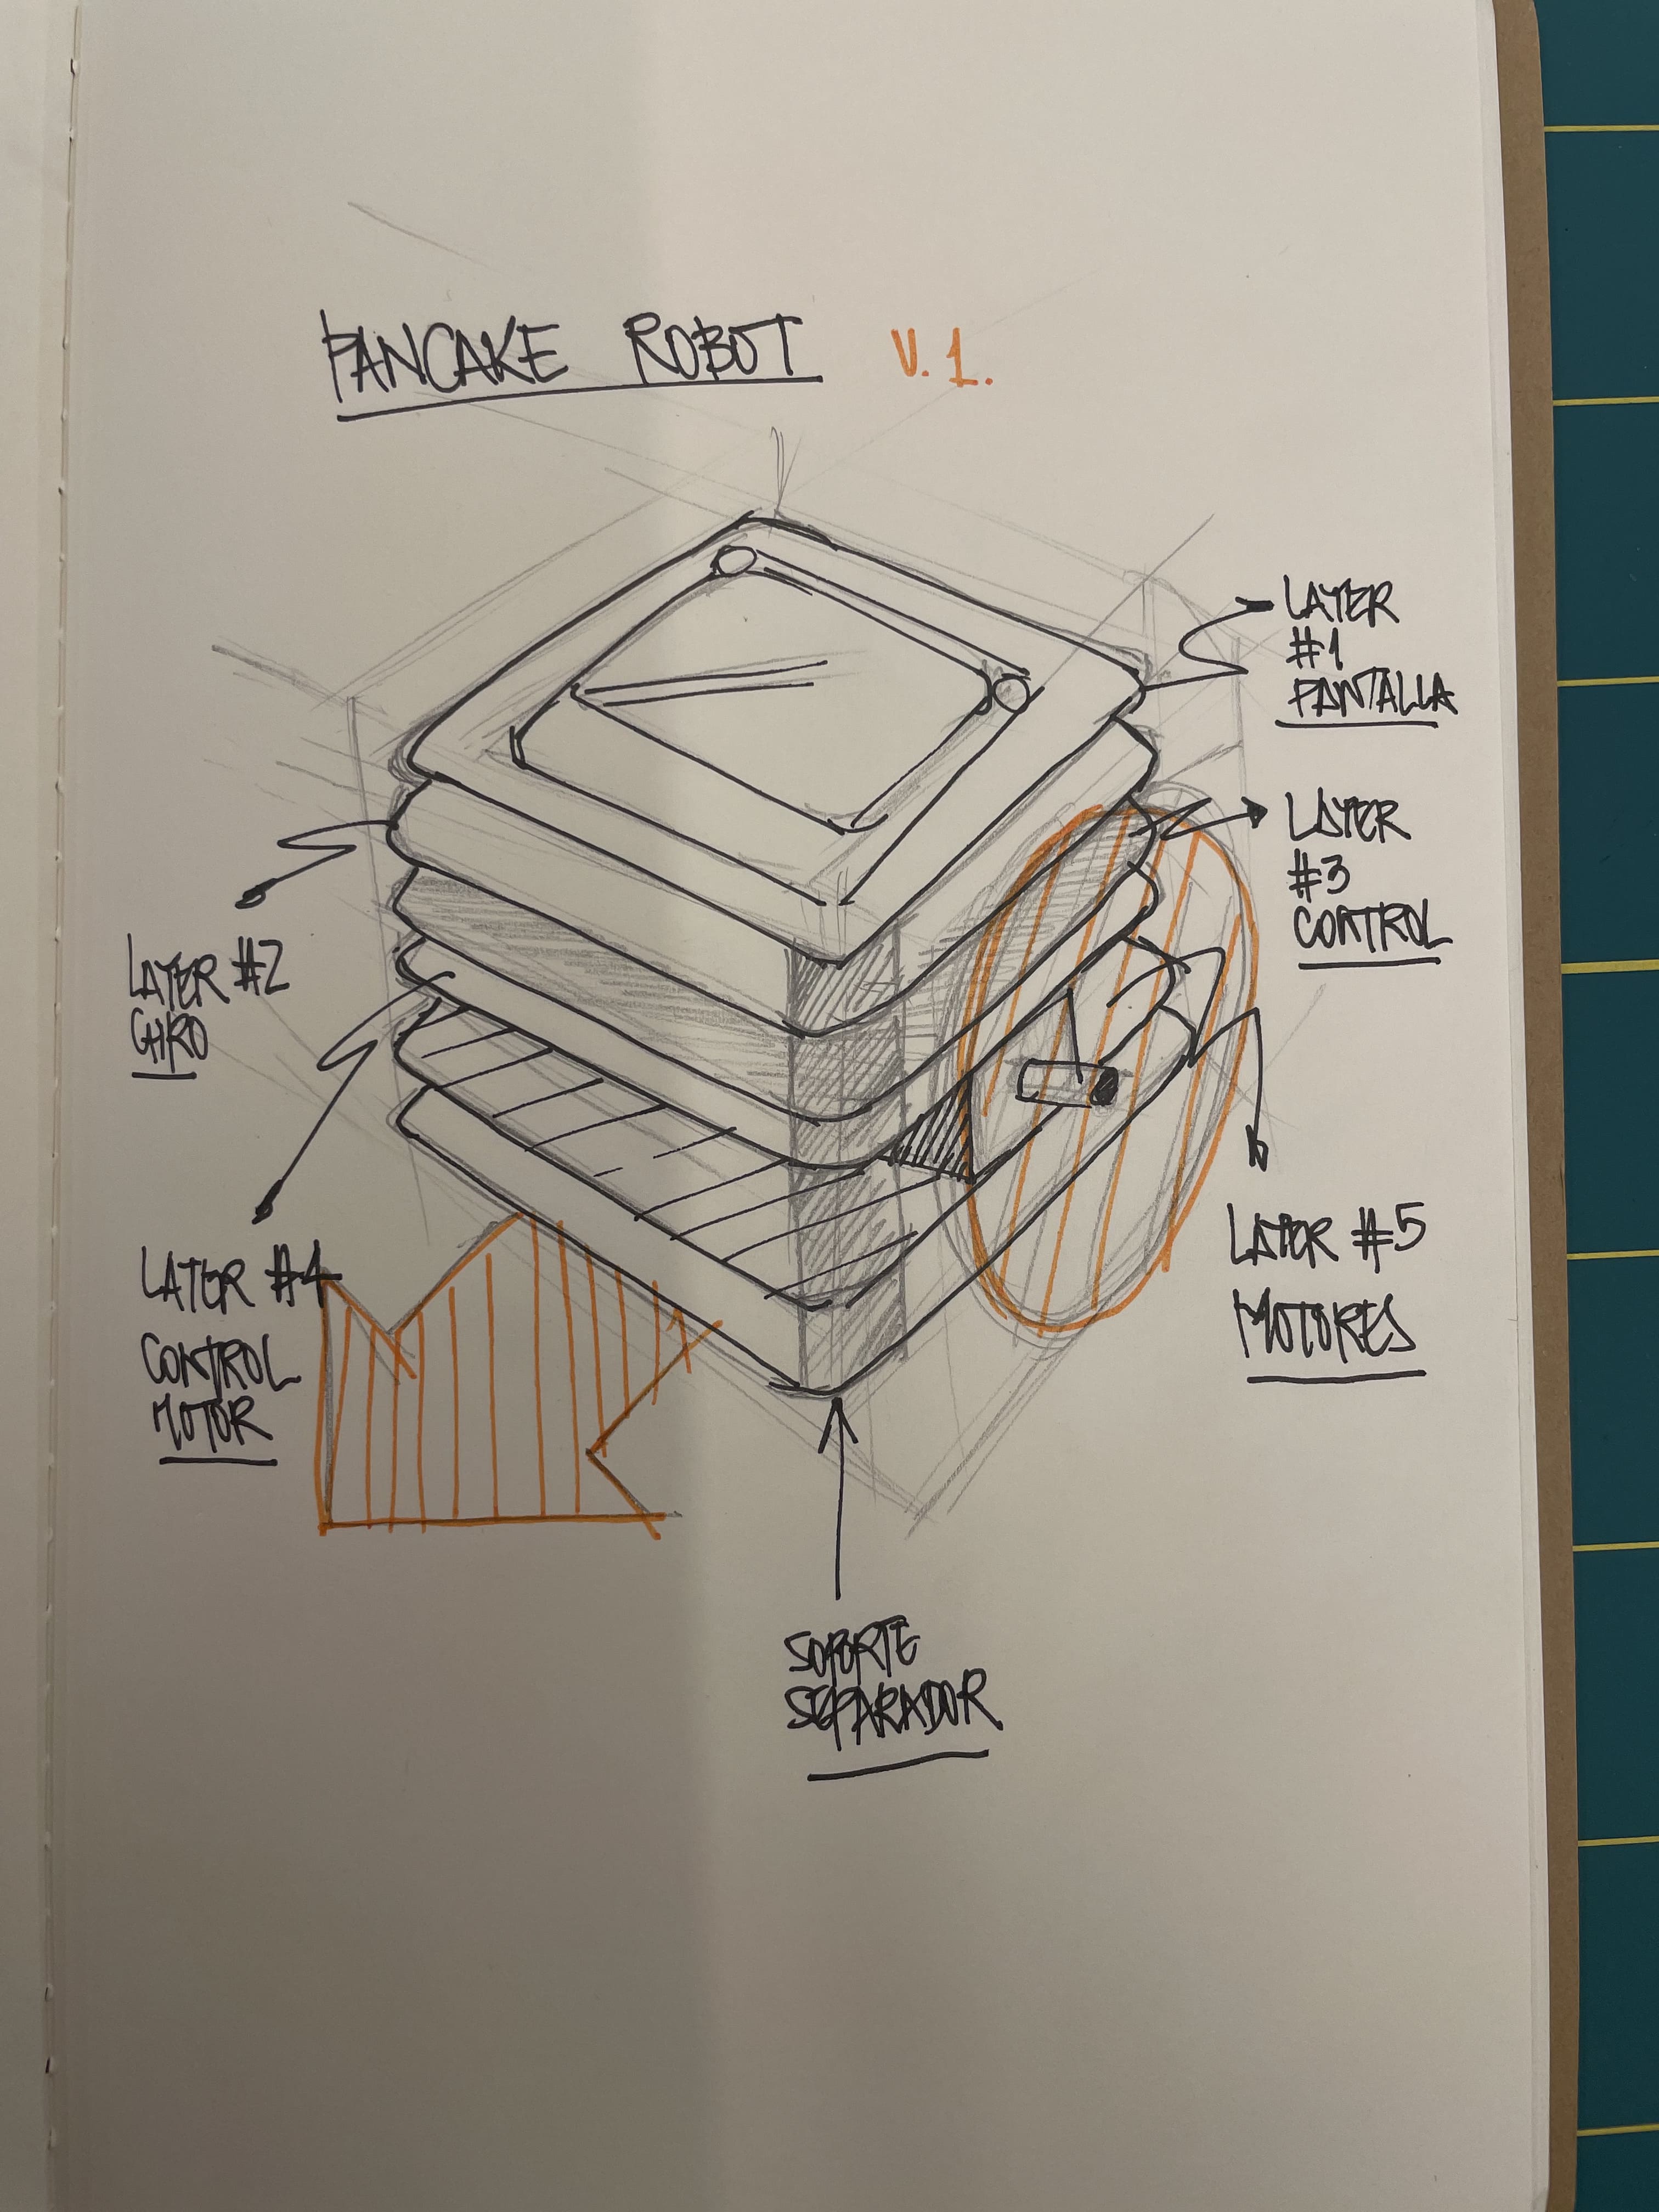 PANCAKE ROBOT V.1.
LAYER
#1
PANTALLA
LAYER
#3
CONTROL
LAYER #2
GHIRO
LAYER #4
CONTROL
MOTOR
LAYER #5
MOTORES
SOPORTE
SEPARADOR